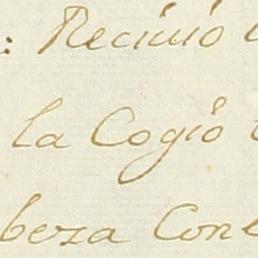 : Reciuió
la Cogió
beza Con